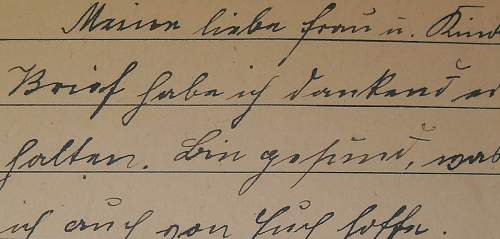 Meine liebe Frau u. Kind
Brief habe ich dankend er
halten. Bin gesund, was
ich auch von Euch hoffe.